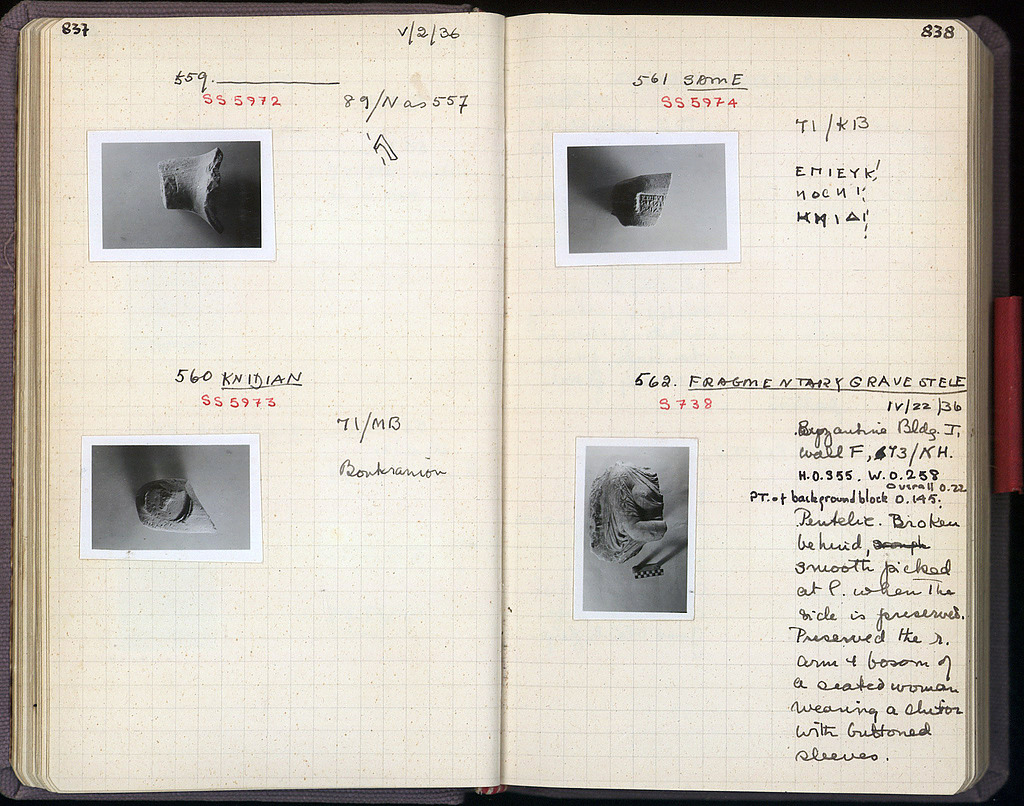 837
V/2/36
559.
SS 5972
89/N as 557
560 KNIDIAN
SS 5973
71/MB
Boukranion
838
561 SAME
SS 5974
71/KB
ΕΠΙΕΥΚ
ΠΟCΗ
ΚΝΙΔ
562. FRAGMENTARY GRAVE STELE
S 738
IV/22/36
Byzantine Bldg. I,
wall F, 73/KH.
H.0.355. W.0.258
overall 0.22
PT. of background block 0.145.
Pentelic. Broken
behind,
smooth picked
at l. when the
side is preserved.
Preserved the r.
arm & bosom of
a seated woman
wearing a chiton
with buttoned
sleeves.